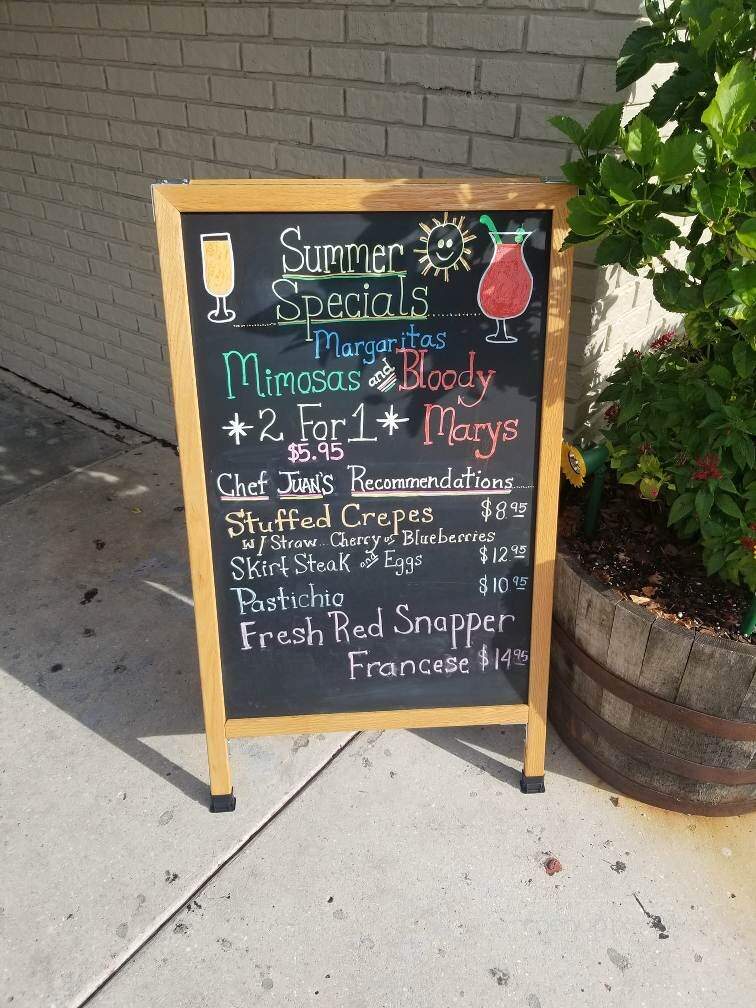 Summer
Specials
Margaritas
Mimosas and Bloody
*2 For 1* Marys
$5.95
Chef JUAN'S Recommendations
Stuffed Crepes $8.95
w/ Straw.. Cherry or Blueberries
Skirt Steak and Eggs $12.95
Pastichio $10.95
Fresh Red Snapper
Francese $14.95